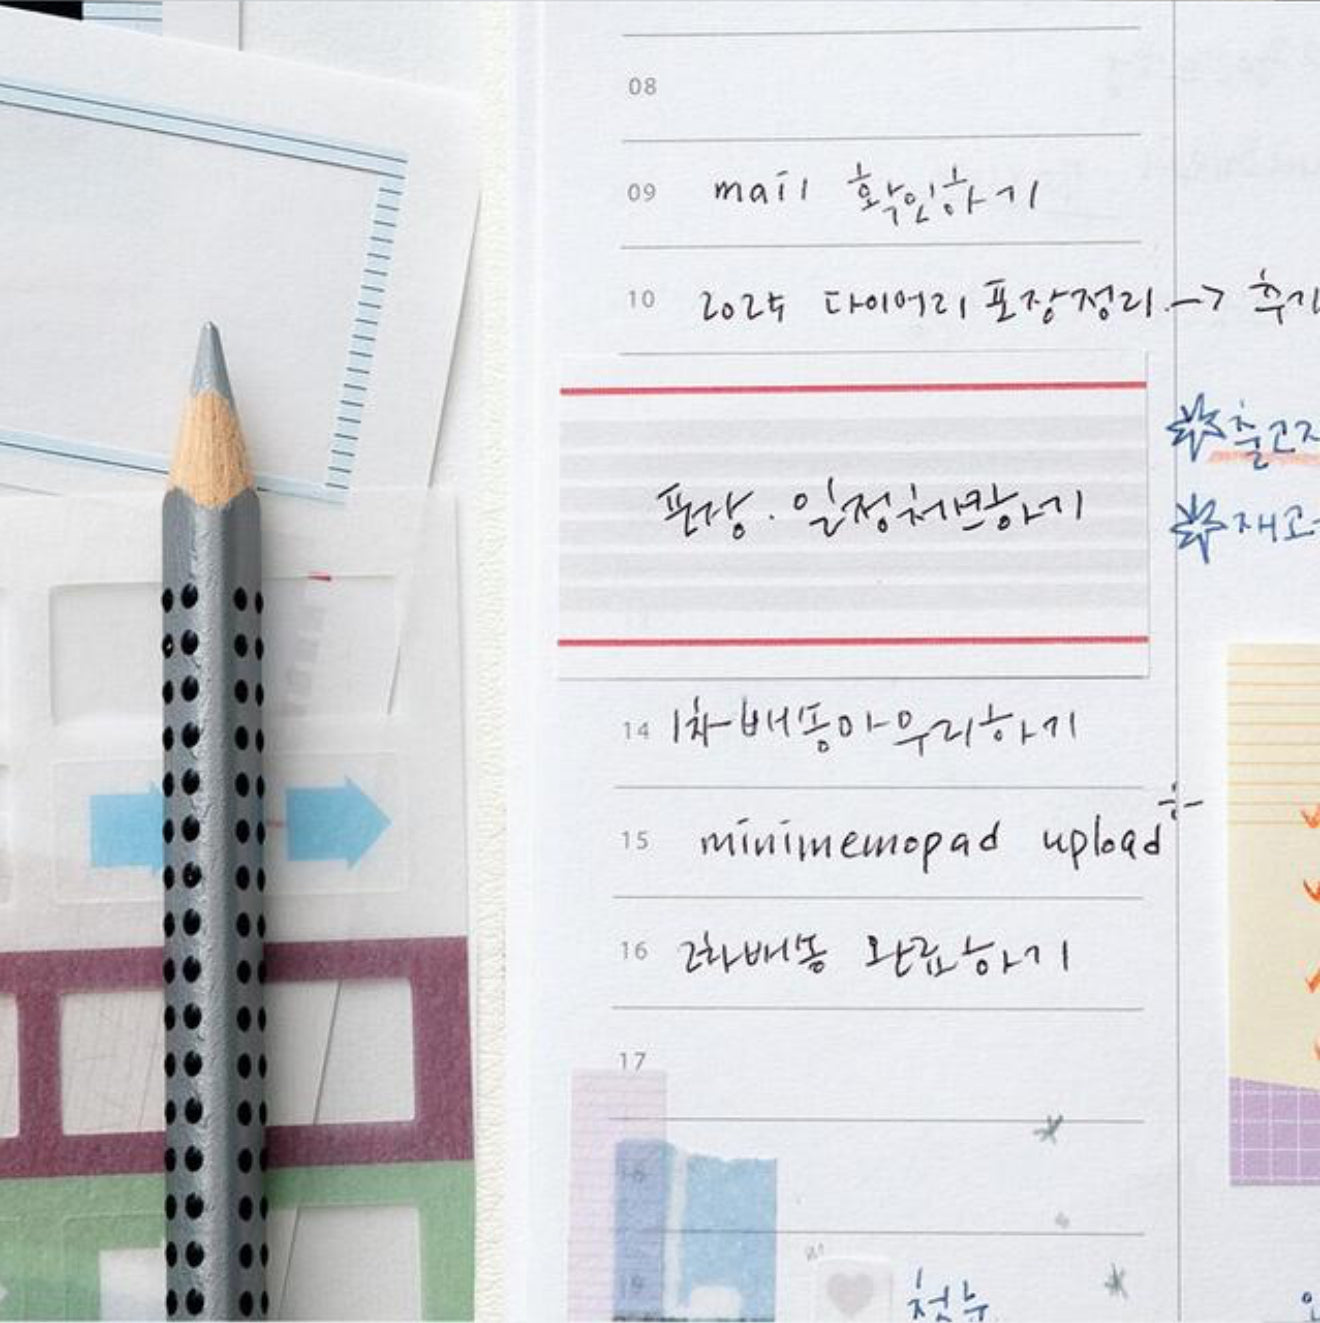 08
09 mail 확인하기
10 2025 다이어리 포장정리 → 추가
포장·일정 처변하기
✴출고
✴재고
14 1차배송마무리하기
15 minimemopad upload
16 2차배송 완료하기
17
18
19